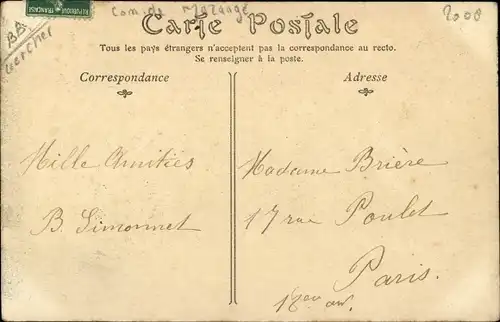 RÉPUBLIQUE FRANÇAISE
2008
Carte Postale
Tous les pays étrangers n'acceptent pas la correspondance au recto.
Se renseigner à la poste.
Correspondance
Adresse
Mille Amitiés
B. Simonnet
Madame Brière
17 rue Poulet
Paris.
18em arr.